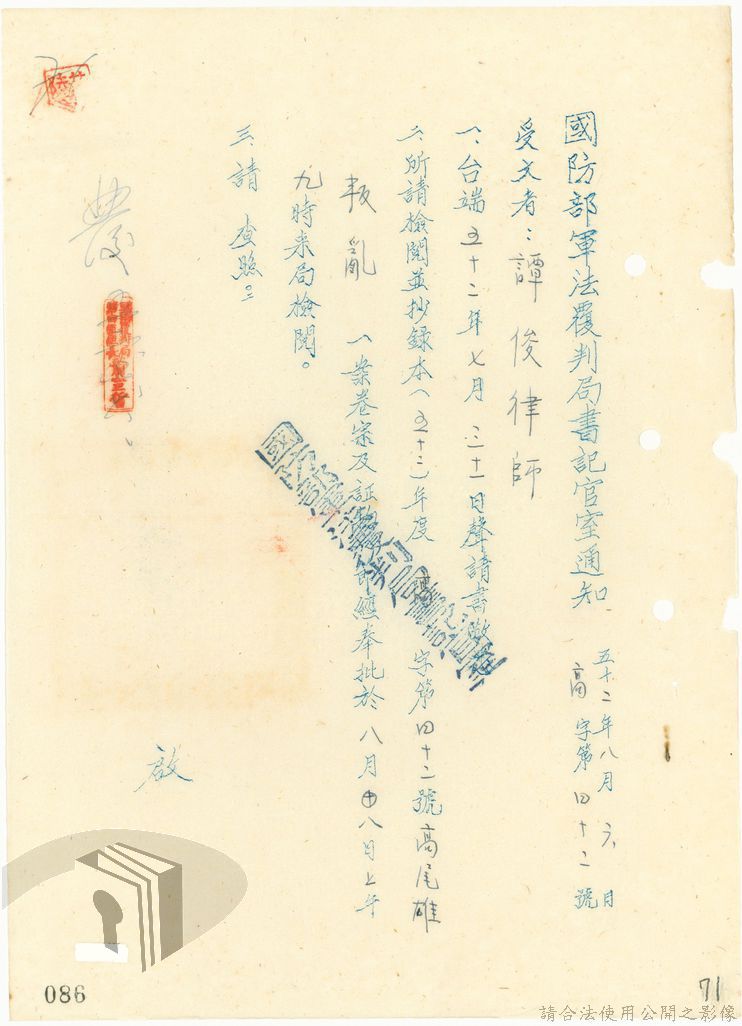 國防部軍法覆判局書記官室通知
五十二年八月六日
高字第四十二號
受文者:譚俊律師
一、台端五十二年七月三十一日聲請書敬
二、所請檢閱並抄錄本(五十二)年度高字第四十二號高尾雄
叛亂一案卷宗及証物即經奉批於八月十八日上午
九時來局檢閱。
三、請查照。
啟
086
71
請合法使用公開之影像